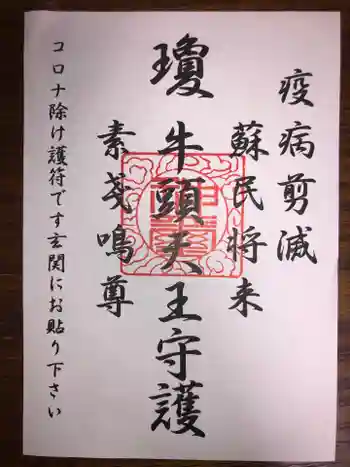 疫病剪滅
蘇民将来
瓊 牛頭天王守護
素戔鳴尊
コロナ除け護符です玄関にお貼り下さい